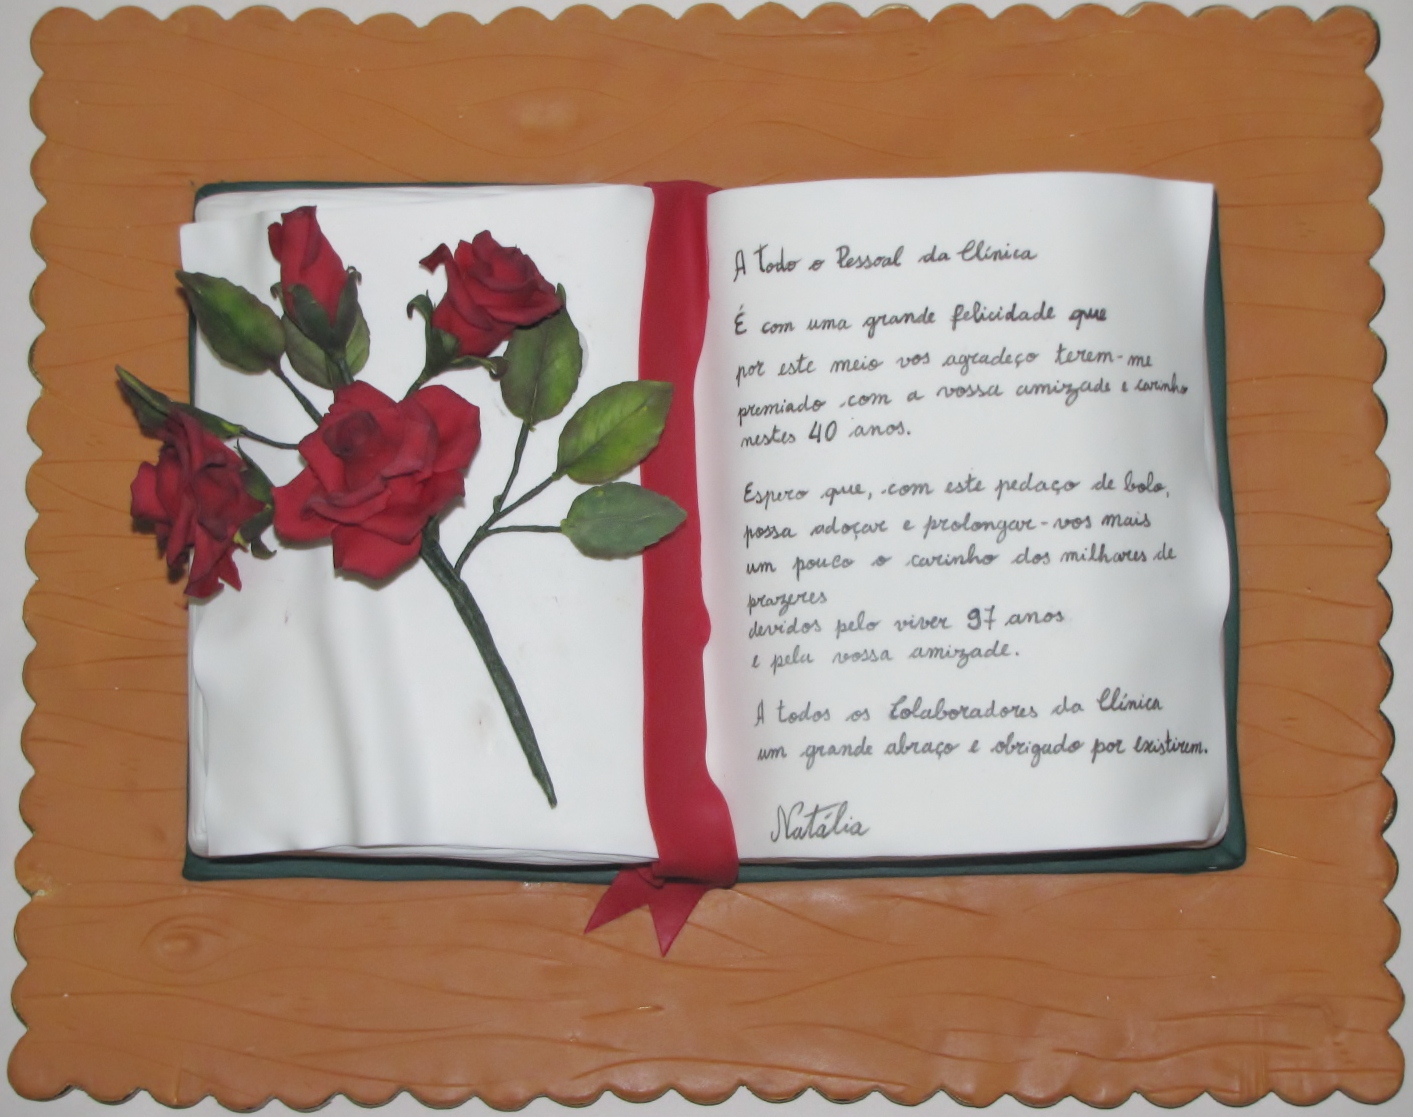 A todo o Pessoal da Clínica
É com uma grande felicidade que
por este meio vos agradeço terem-me
premiado com a vossa amizade e carinho
nestes 40 anos.
Espero que, com este pedaço de bolo,
possa adoçar e prolongar-vos mais
um pouco o carinho dos milhares de
prazeres
devidos pelo viver 97 anos
e pela vossa amizade.
A todos os Colaboradores da Clínica
um grande abraço e obrigado por existirem.
Natália